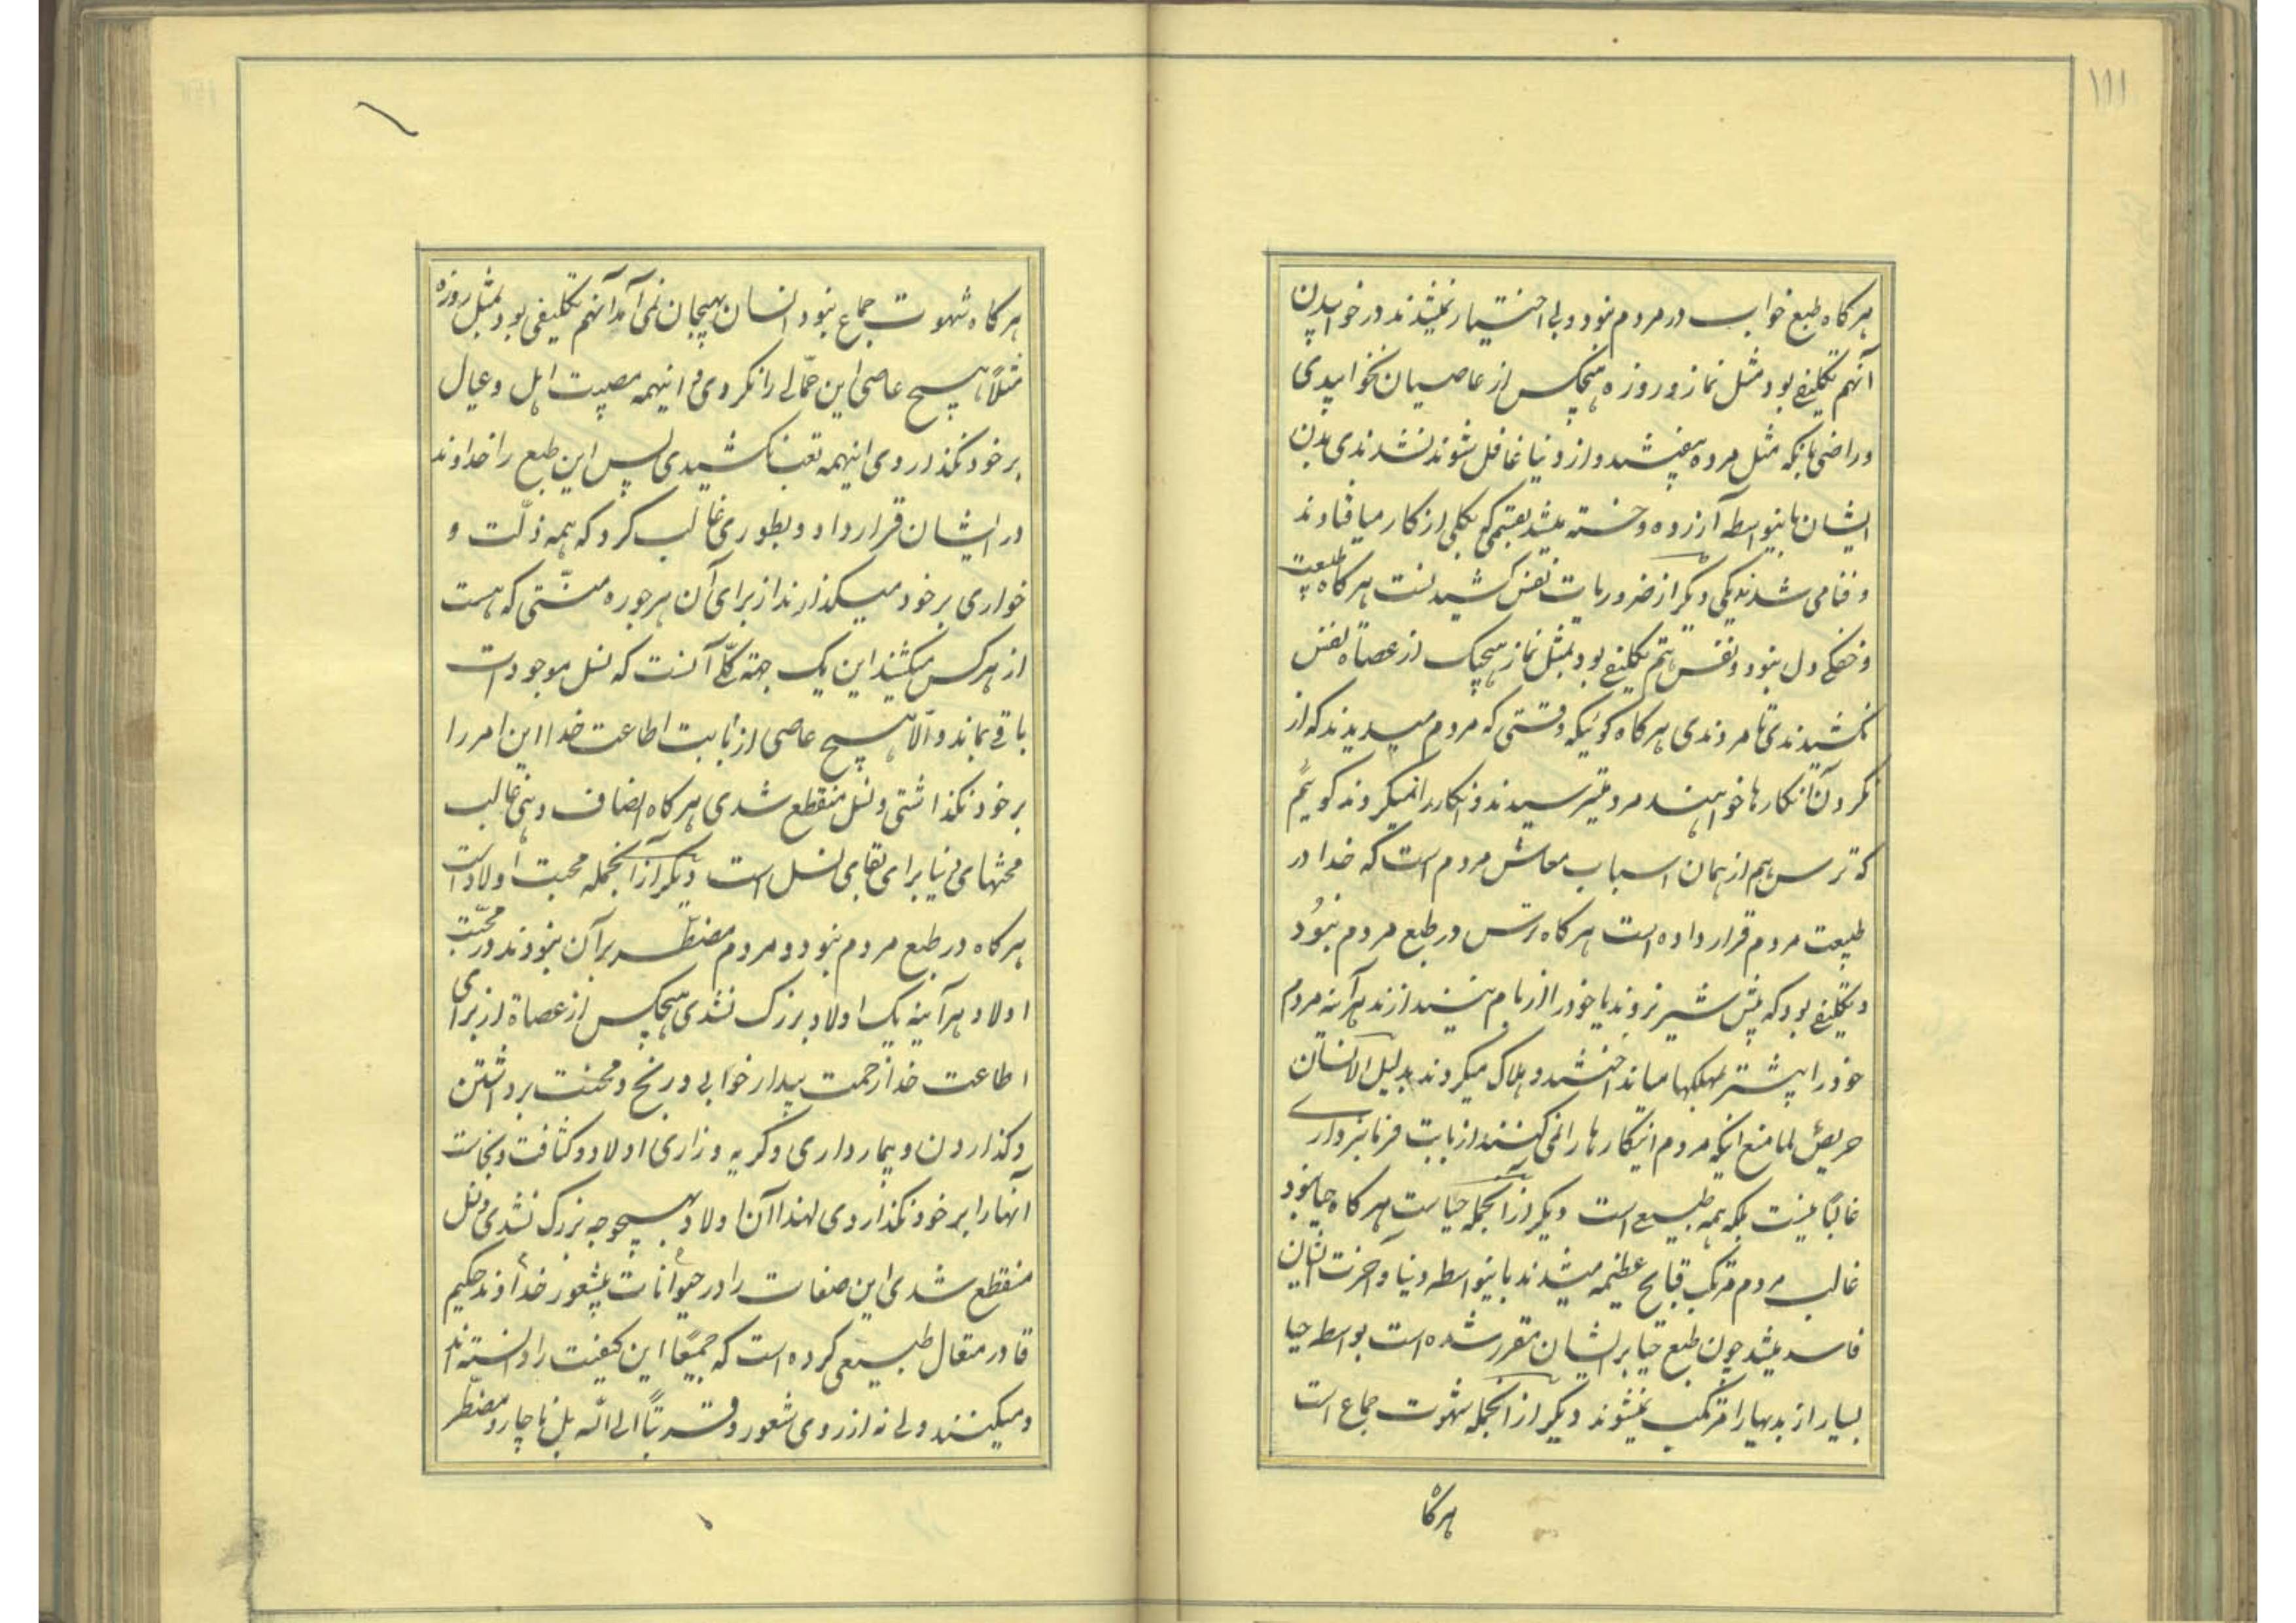 ۱۱۱
هرکاه طبع خواب در مردم نبود و بی اختیار نمیشدند در خوابیدن
آنهم تکلیفی بود مثل نماز و روزه هیچکس از عاصیان نخوابیدی
و راضی بانکه مثل مرده بیفتند و از دنیا غافل شوند نشدندی بدن
ایشان باینواسطه آزرده و خسته میشد بقسمی که بکلی از کار میافتادند
و فنا می شدند یکی دیکر از ضروریات نفس کشیدنست هرکاه طبیعت
و خفکی دل نبود و نفس هم تکلیفی بود بمثل نماز هیچیک از عصاة نفس
نکشیدندی تا مردندی هرکاه کوئیکه وقتی که مردم میدیدند که از
نکردن آنکارها خواهند مرد میترسیدند و انکار را میکردند کویم
که ترس هم از همان اسباب معاش مردم است که خدا در
طبیعت مردم قرار داده است هرکاه ترس در طبع مردم نبود
و تکلیفی بود که پیش شیر نروند یا خود را از بام نیندازند هرآینه مردم
خود را بیشتر بمهلکها میانداختند و هلاک میکردند بدلیل الانسان
حریص لما منع اینکه مردم اینکارها را نمی کنند از بابت فرمانبرداری
غالباً نیست بلکه همه طبیعی است دیکر از آنجمله حیاست هرکاه حیا نبود
غالب مردم مرتکب قبایح عظیمه میشدند باینواسطه دنیا و آخرت ایشان
فاسد میشد چون طبع حیا بر ایشان مقرر شده است بواسطه حیا
بسیار از بدیها را مرتکب نمیشوند دیکر از آنجمله شهوت جماع است
هرکاه
هرکاه شهوت جماع نبود انسان بهیجان نمی آمد آنهم تکلیفی بود بمثل روزه
مثلاً هیچ عاصی این حمالی را نکردی و اینهمه مصیبت اهل و عیال
بر خود نکذاردی اینهمه تعب نکشیدی پس این طبع را خداوند
در ایشان قرار داد و بطوری غالب کرد که همه ذلت و
خواری بر خود میکذارند از برای آن هرجوره منتی که هست
از هرکس میکشند این یک جهته کلی آنست که نسل موجودات
باقی بماند و الّا هیچ عاصی از بابت اطاعت خدا این امر را
بر خود نکذاشتی و نسل منقطع شدی هرکاه انصاف دهی غالب
محنتهای دنیا برای بقای نسل است دیکر از آنجمله محبت اولاد است
هرکاه در طبع مردم نبود و مردم مضطر بر آن نبودند در محبّت
اولاد هرآینه یک اولاد بزرک نشدی هیچکس از عصاة از برای
اطاعت خدا زحمت بیدار خوابی و رنج و محنت برداشتن
و کذاردن و بیمار داری و کریه و زاری اولاد و کثافت و نجاست
آنها را بر خود نکذاردی لهذا آن اولاد بهیچوجه بزرک نشدی و نسل
منقطع شدی این صفات را در حیوانات بیشعور خداوند حکیم
قادر متعال طبیعی کرده است که جمیعاً این کیفیت را دانسته اند
و میکنند ولی نه از روی شعور و قربتاً الی الله بل ناچار و مضطر